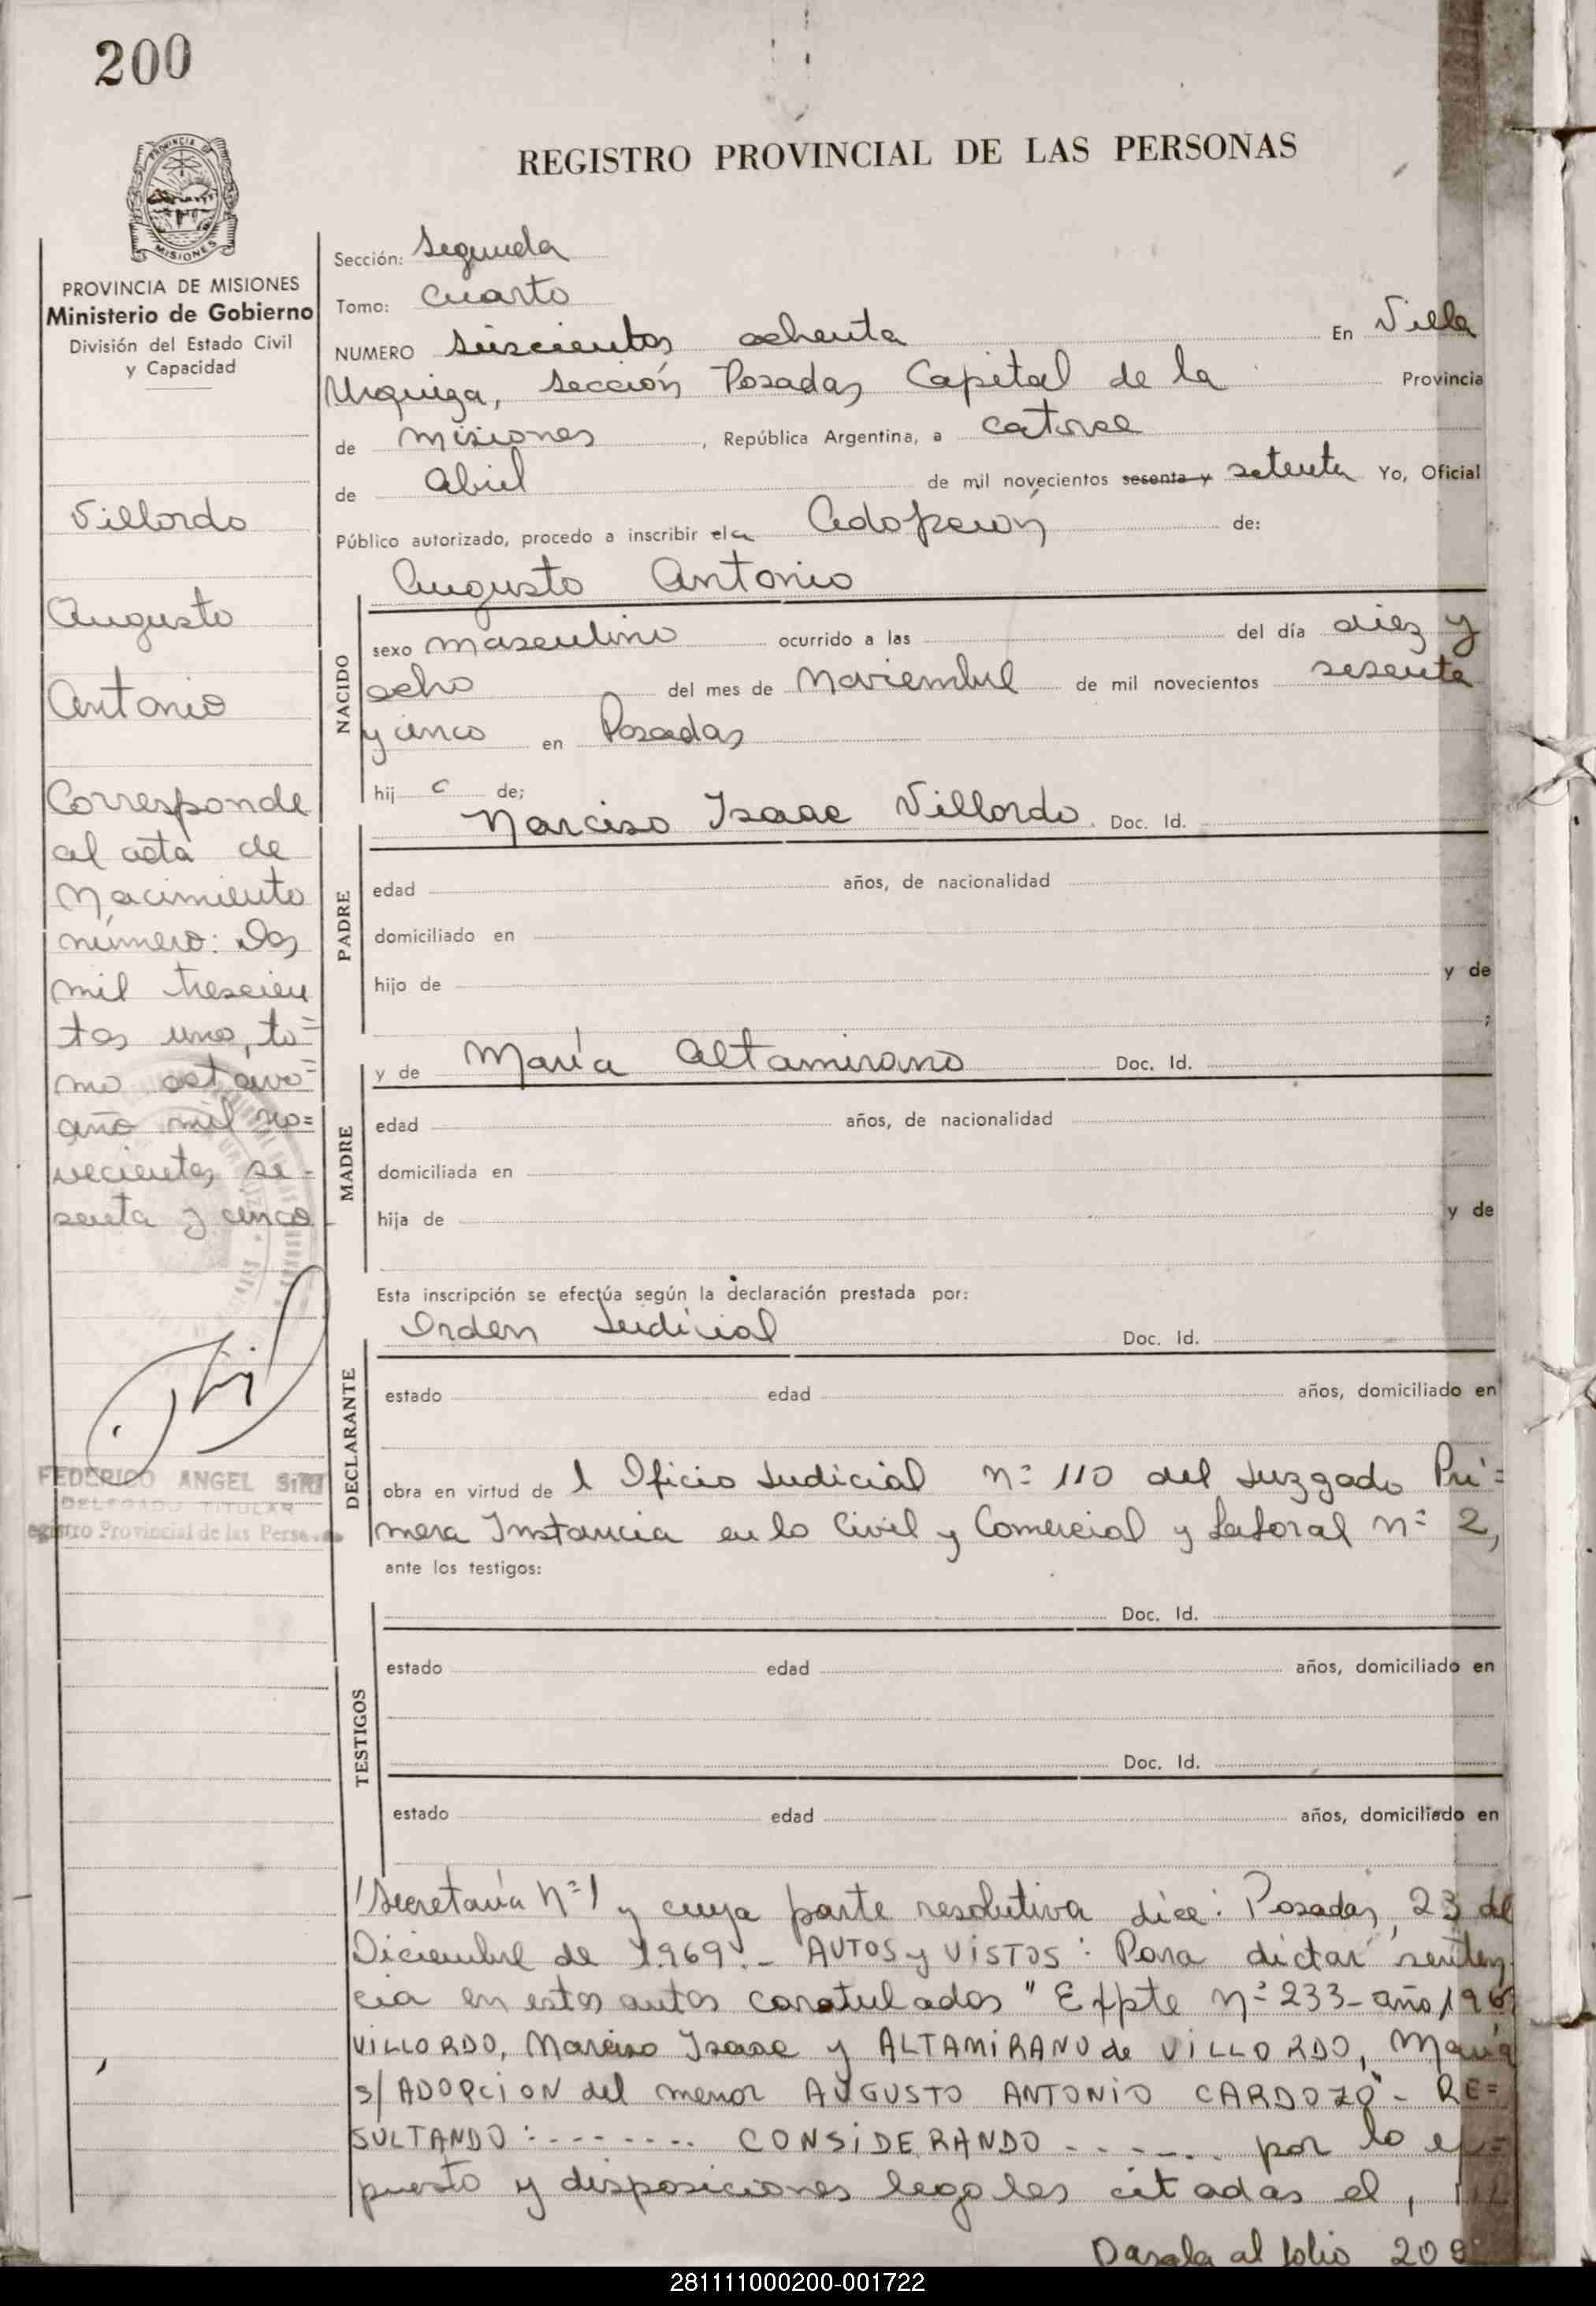 200
REGISTRO PROVINCIAL DE LAS PERSONAS
PROVINCIA DE MISIONES
PROVINCIA DE MISIONES
Ministerio de Gobierno
División del Estado Civil
y Capacidad
Villordo
Augusto
Antonio
Corresponde
al acta de
Nacimiento
número: Dos
mil trescien
tos uno, to=
mo octavo=
año mil no=
vecientos se-
senta y cinco
FEDERICO ANGEL SIRI
DELEGADO TITULAR
egistro Provincial de las Perso
Sección: Segunda
Tomo: Cuarto
NUMERO Seiscientos ochenta En Villa
Urquiza, Sección Posadas Capital de la Provincia
de Misiones, República Argentina, a catorce
de Abril de mil novecientos sesenta y setenta Yo, Oficial
Público autorizado, procedo a inscribir el a Adopción de:
NACIDO
Augusto Antonio
sexo masculino ocurrido a las del día diez y
ocho del mes de Noviembre de mil novecientos sesenta
y cinco en Posadas
hij o de;
PADRE
Narciso Isaac Villordo. Doc. Id.
edad años, de nacionalidad
domiciliado en
hijo de y de
;
MADRE
y de María Altamirano Doc. Id.
edad años, de nacionalidad
domiciliada en
hija de y de
Esta inscripción se efectúa según la declaración prestada por:
DECLARANTE
Orden Judicial Doc. Id.
estado edad años, domiciliado en
obra en virtud de l Oficio Judicial nº 110 del Juzgado Pri=
mera Instancia en lo Civil y Comercial y Laboral nº 2,
ante los testigos:
TESTIGOS
Doc. Id.
estado edad años, domiciliado en
Doc. Id.
estado edad años, domiciliado en
Secretaría Nº 1 y cuya parte resolutiva dice: Posadas, 23 de
Diciembre de 1.969.- AUTOS y VISTOS: Para dictar senten
cia en estos autos caratulados "Expte nº 233-año
VILLORDO, Narciso Isaac y ALTAMIRANO de VILLORDO, María
s/ ADOPCION del menor AUGUSTO ANTONIO CARDOZO"- RE=
SULTANDO:-------- CONSIDERANDO ------ por lo ex=
puesto y disposiciones legales citadas el,
Pasala al folio
281111000200-001722